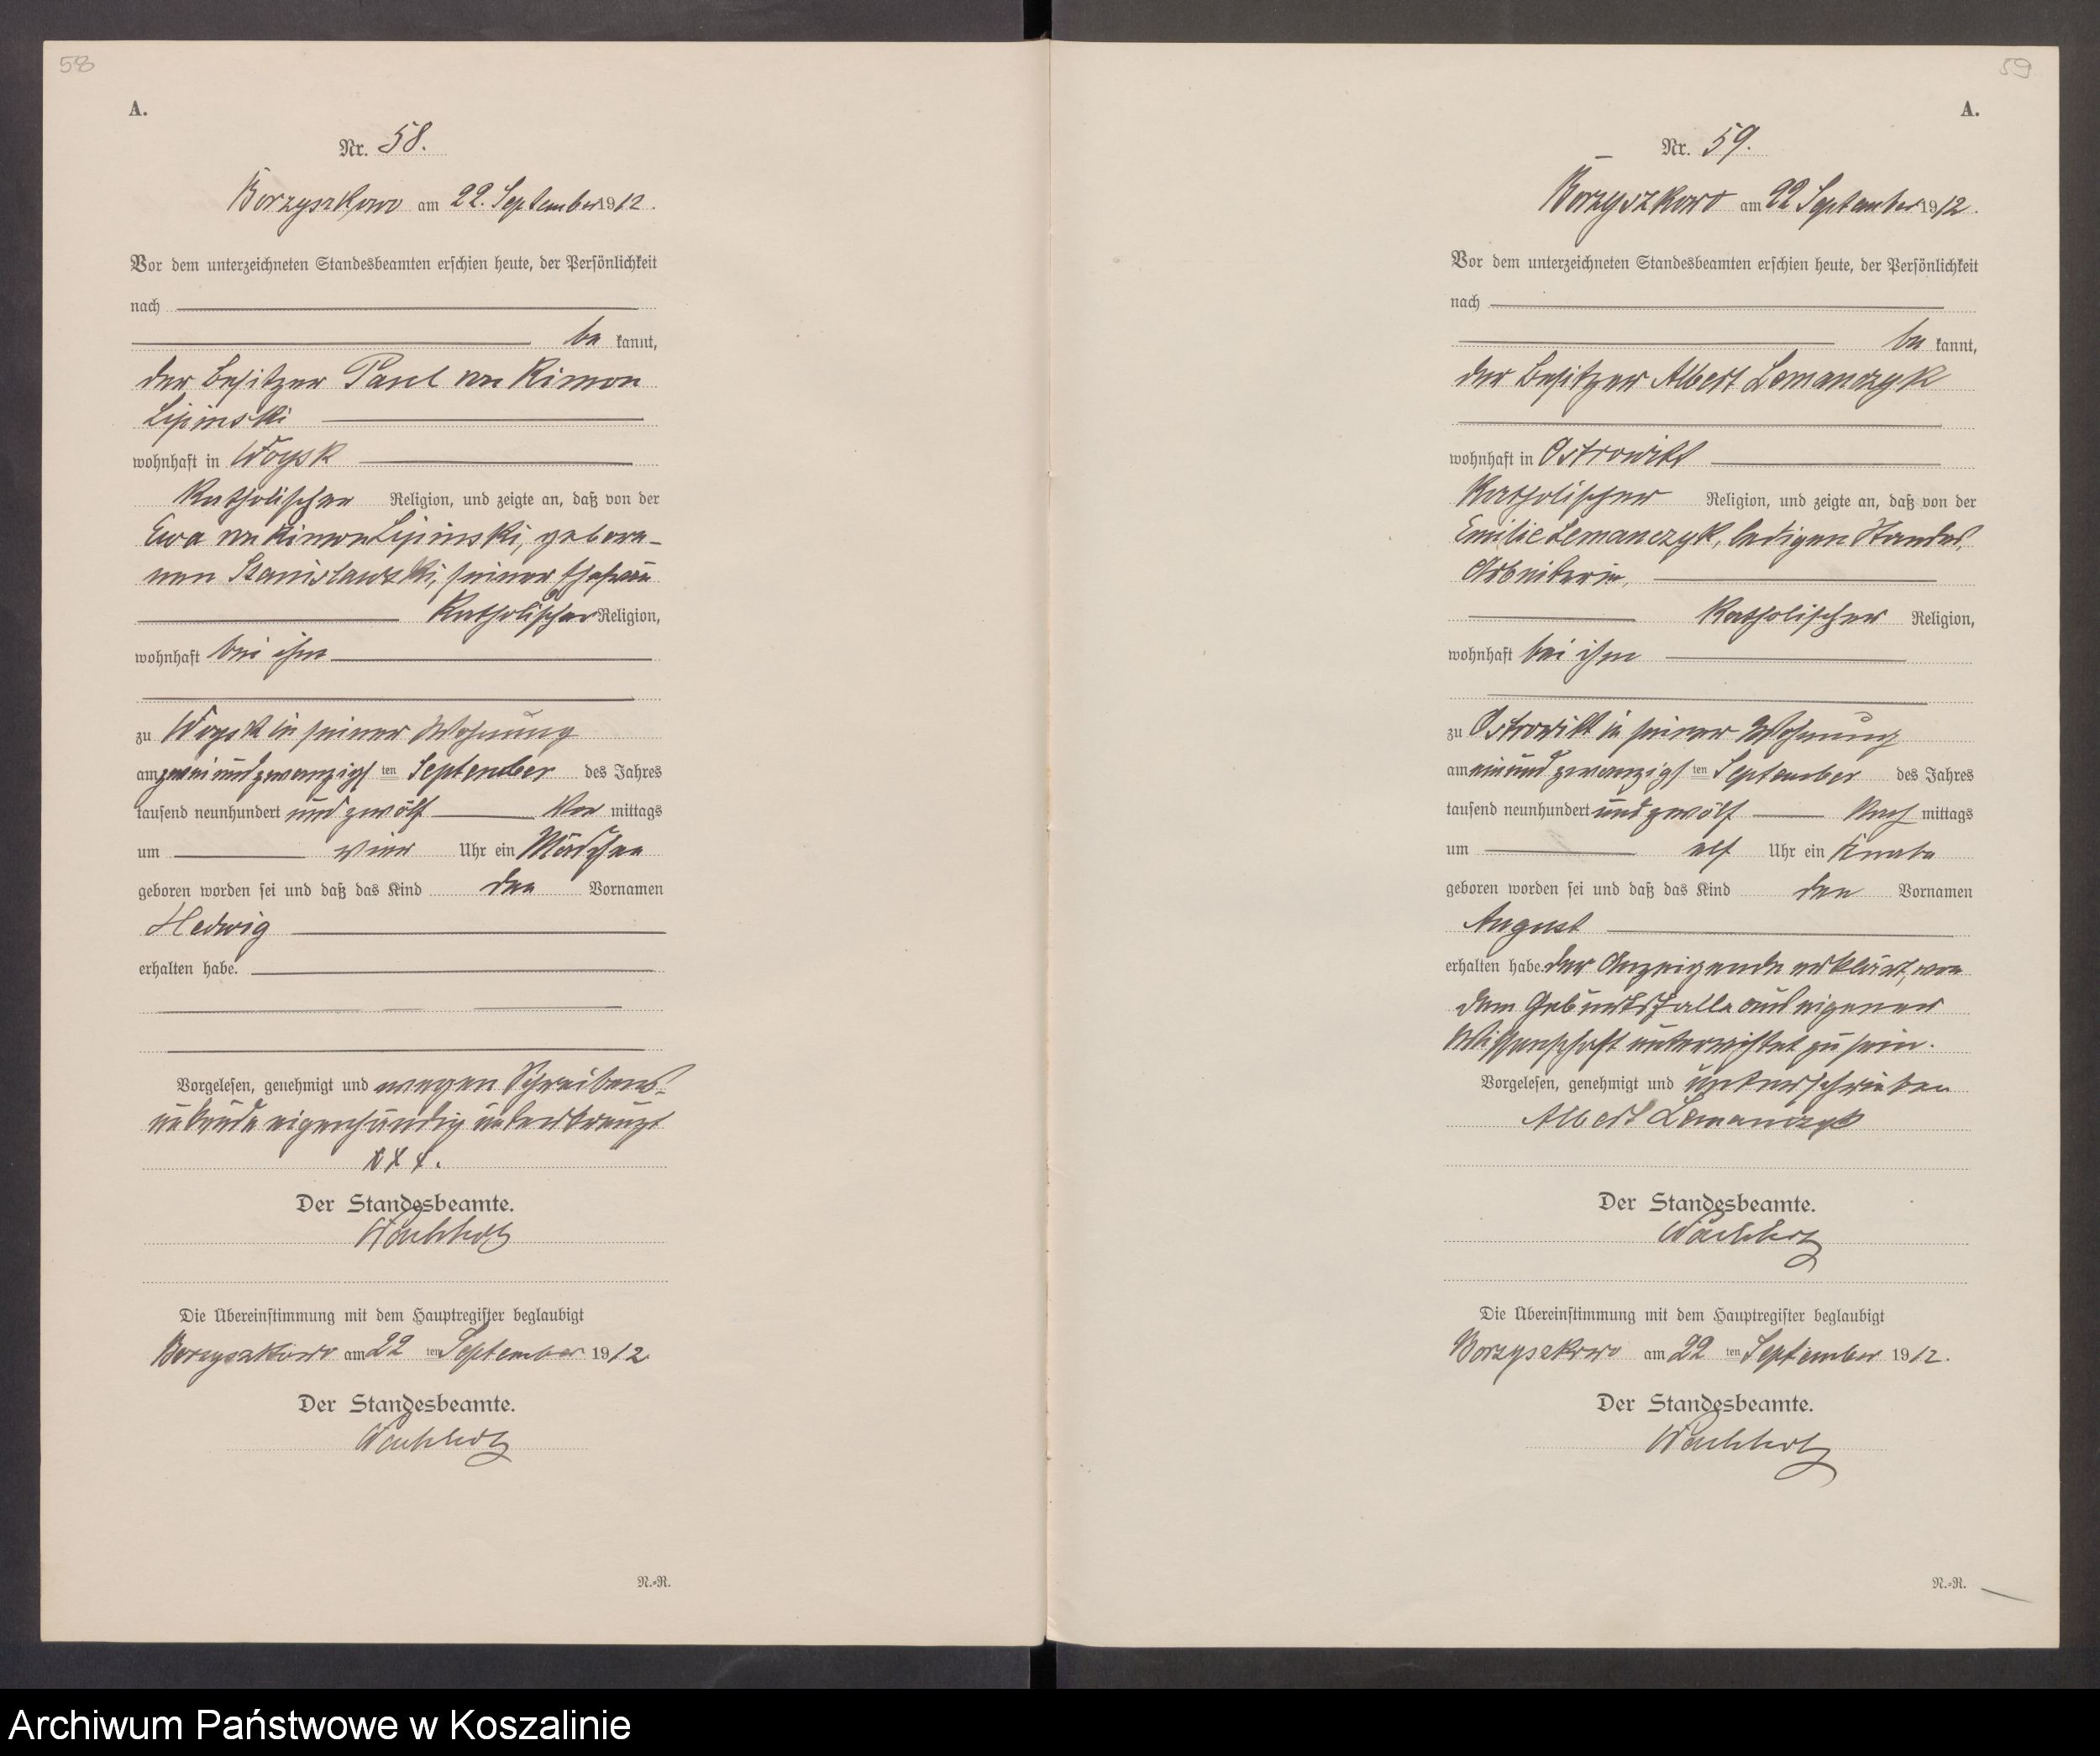 58
A.
Nr. 58.
Borzyszkowo am 22. September 1912.
Vor dem unterzeichneten Standesbeamten erschien heute, der Persönlichkeit
nach
be kannt,
der Besitzer Paul von Kimon
Lipinski
wohnhaft in Woysk
Katholischen Religion, und zeigte an, daß von der
Ewa von Kimon Lipinski, gebore-
nen Stanislawski, seiner Ehefrau
Katholischer Religion,
wohnhaft bei ihm
zu Woysk in seiner Wohnung
am zweiundzwanzigs ten September des Jahres
tausend neunhundert und zwölf Vor mittags
um vier Uhr ein Mädchen
geboren worden sei und daß das Kind den Vornamen
Hedwig
erhalten habe.
Vorgelesen, genehmigt und wegen Schreibens-
unkunde eigenhändig unterkreuzt
XXX.
Der Standesbeamte.
Wachholz
Die Übereinstimmung mit dem Hauptregister beglaubigt
Borzyszkowo am 22 ten September 1912
Der Standesbeamte.
Wachholz
N.-R.
59
A.
Nr. 59.
Borzyszkowo am 22 September 1912.
Vor dem unterzeichneten Standesbeamten erschien heute, der Persönlichkeit
nach
be kannt,
der Besitzer Albert Lemanczyk
wohnhaft in Ostrowitt
Katholischer Religion, und zeigte an, daß von der
Emilie Lemanczyk, ledigen Standes,
Arbeiterin,
Katholischer Religion,
wohnhaft bei ihm
zu Ostrowitt in seiner Wohnung
am einundzwanzigs ten September des Jahres
tausend neunhundert und zwölf Nach mittags
um elf Uhr ein Knabe
geboren worden sei und daß das Kind den Vornamen
August
erhalten habe. der Anzeigende erklärt, von
dem Geburtsfalle aus eigener
Wissenschaft unterrichtet zu sein.
Vorgelesen, genehmigt und unterschrieben
Albert Lemanczyk
Der Standesbeamte.
Wachholz
Die Übereinstimmung mit dem Hauptregister beglaubigt
Borzyszkowo am 22 ten September 1912.
Der Standesbeamte.
Wachholz
N.-R.
Archiwum Państwowe w Koszalinie